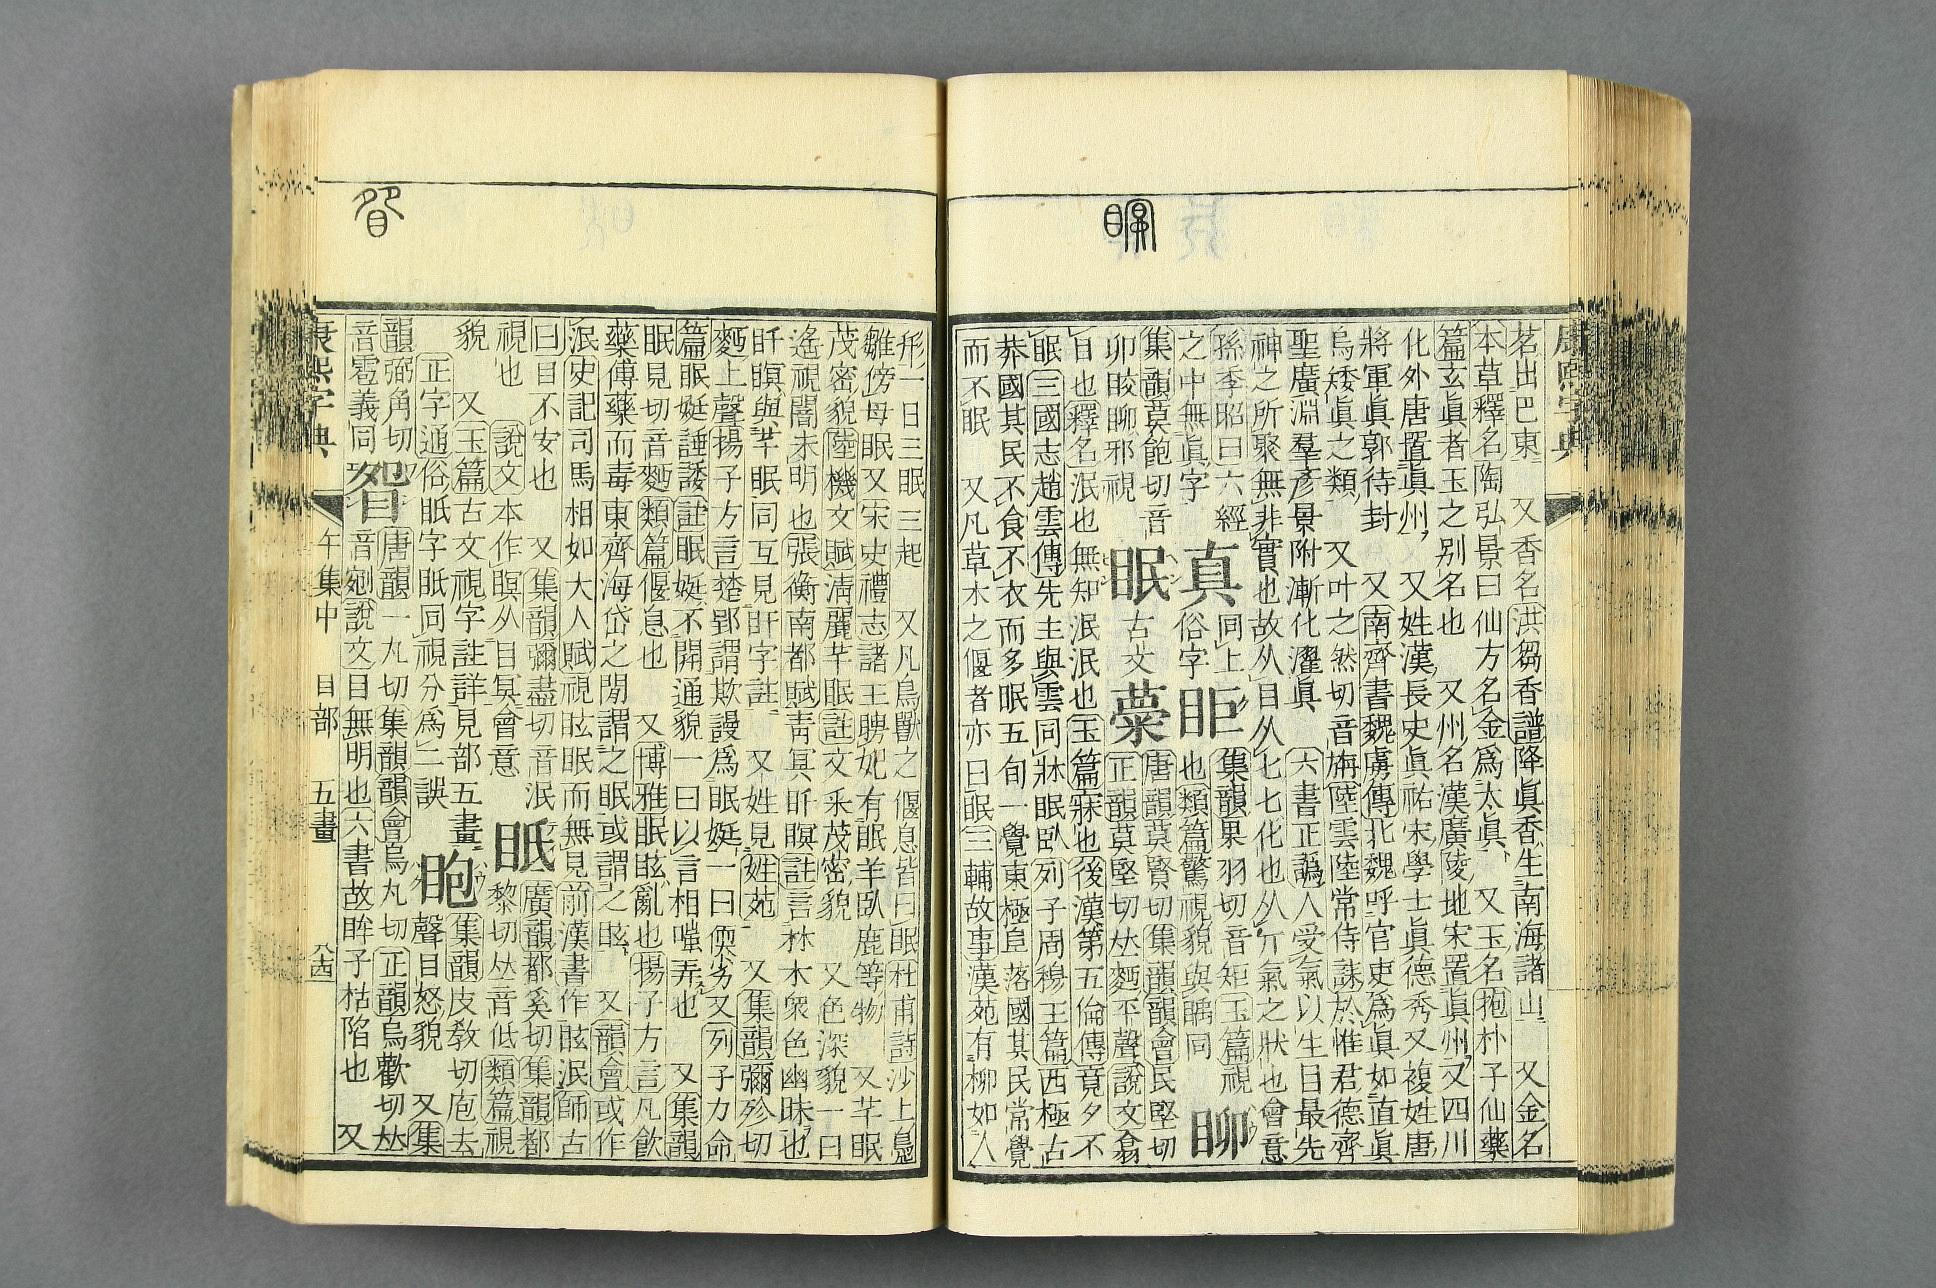 康熙字典
茗出巴東　又香名洪芻香譜降眞香生南海諸山　又金名
本草釋名陶弘景曰仙方名金爲太眞　又玉名抱朴子仙藥
篇玄眞者玉之別名也　又州名漢廣陵地宋置眞州又四川
化外唐置眞州　又姓漢長史眞祐宋學士眞德秀又複姓唐
將軍眞郭待封　又南齊書魏虜傳北魏呼官吏爲眞如直眞
烏矮眞之類　又叶之然切音旃陸雲陸常侍誄於惟君德齊
聖廣淵羣彥景附漸化濯眞　六書正譌人受氣以生目最先
神之所聚無非實也故从目从匕匕化也从亣氣之狀也會意
孫季昭曰六經
之中無眞字
真
同上
俗字
集韻果羽切音矩玉篇視
也類篇驚視貌與同
集韻莫飽切音
卯邪視
眠
古文
唐韻莫賢切集韻韻會民堅切
正韻莫堅切𠀤麪平聲說文翕
目也釋名泯也無知泯泯也玉篇寐也後漢第五倫傳竟夕不
眠三國志趙雲傳先主與雲同牀眠臥列子周穆王篇西極古
莽國其民不食不衣而多眠五旬一覺東極阜落國其民常覺
而不眠　又凡草木之偃者亦曰眠三輔故事漢苑有柳如人
形一日三眠三起　又凡鳥獸之偃息皆曰眠杜甫詩沙上鳧
雛傍母眠又宋史禮志諸王聘妃有眠羊臥鹿等物　又芊眠
茂密貌陸機文賦淸麗芊眠註文采茂密貌　又色深貌一曰
遙視闇未明也張衡南都賦靑冥盰瞑註言林木衆色幽昧也
盰瞑與芊眠同互見盰字註　又姓見姓苑　又集韻彌殄切
麪上聲揚子方言楚郢謂欺謾爲眠娗一曰偄劣又列子力命
篇眠娗諈諉註眠娗不開通貌一曰以言相嗤弄也　又集韻
眠見切音麪類篇偃息也　又博雅眠眩亂也揚子方言凡飮
藥傅藥而毒東齊海岱之閒謂之眠或謂之眩　又韻會或作
泯史記司馬相如大人賦視眩眠而無見前漢書作眩泯師古
曰目不安也　又集韻彌盡切音泯
視也　說文本作瞑从目冥會意
眡
廣韻都奚切集韻都
黎切𠀤音低類篇視
貌　又玉篇古文視字註詳見部五畫
正字通俗眂字眂同視分爲二誤
䀝
集韻皮敎切庖去
聲目怒貌　又集
韻弼角切
音雹義同
眢
唐韻一丸切集韻韻會烏丸切正韻烏歡切𠀤
音剜說文目無明也六書故眸子枯陷也　又
康熙字典　午集中　目部　五畫